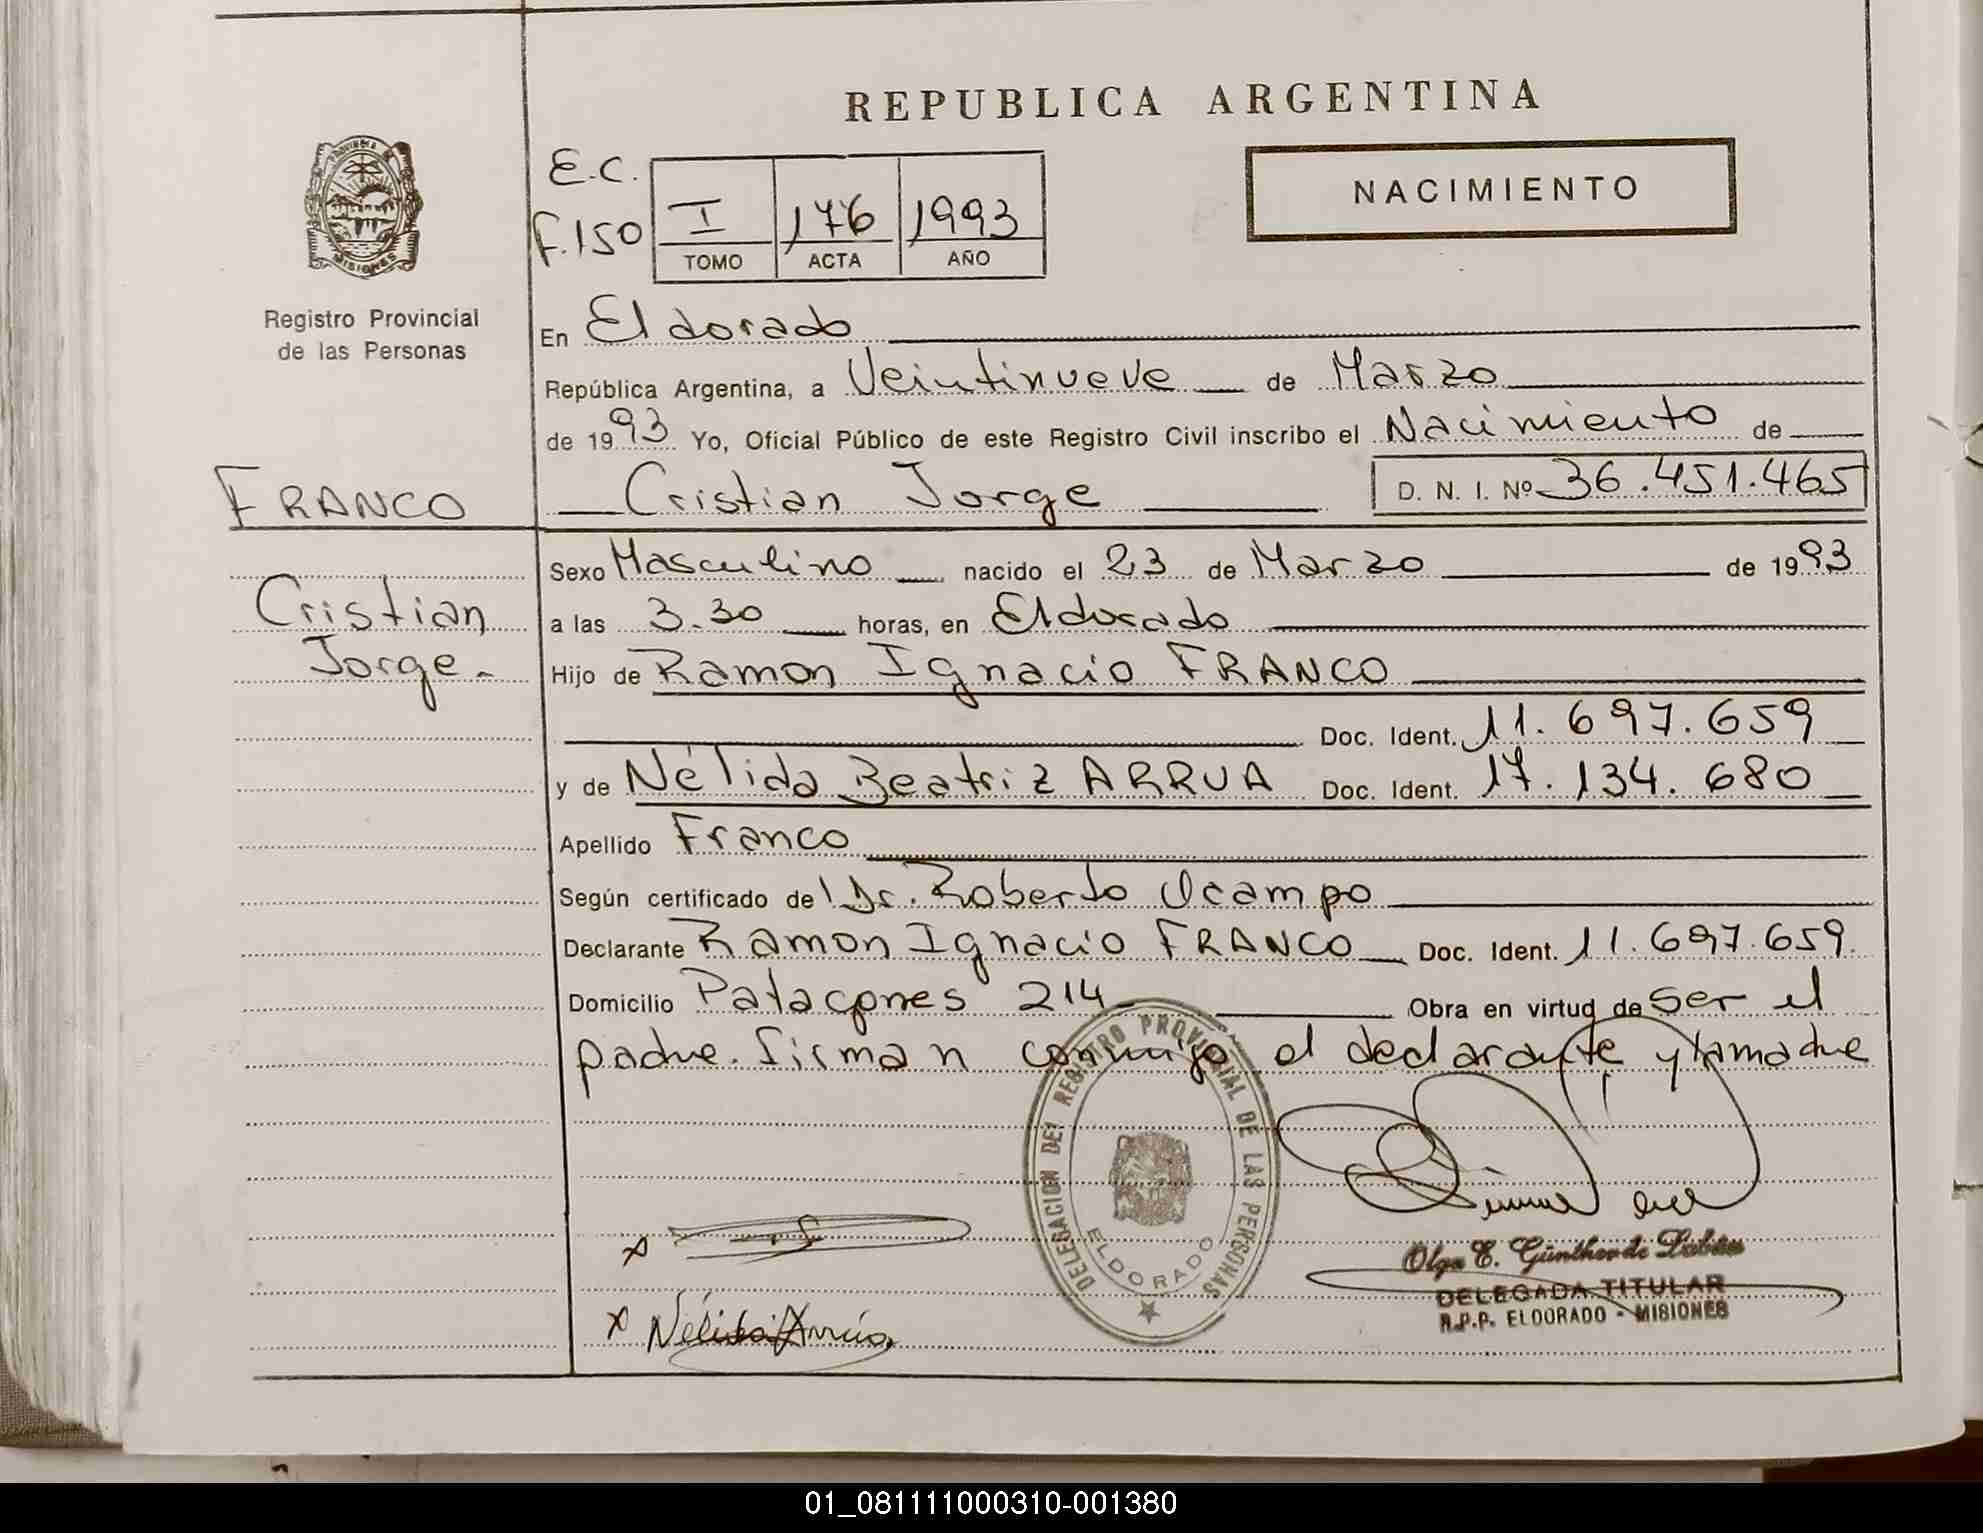 REPUBLICA ARGENTINA
PROVINCIA DE
MISIONES
Registro Provincial
de las Personas
E.C.
F.150
I 176 1993
TOMO ACTA AÑO
NACIMIENTO
En Eldorado
República Argentina, a Veintinueve de Marzo
de 1993 Yo, Oficial Público de este Registro Civil inscribo el Nacimiento de
FRANCO
Cristian Jorge D. N. I. Nº 36.451.465
Sexo Masculino nacido el 23 de Marzo de 1993
Cristian
a las 3.30 horas, en Eldorado
Jorge.-
Hijo de Ramon Ignacio FRANCO
Doc. Ident. 11.697.659
y de Nélida Beatriz ARRUA Doc. Ident. 17.134.680
Apellido Franco
Según certificado del Dr. Roberto Ocampo
Declarante Ramon Ignacio FRANCO Doc. Ident. 11.697.659.
Domicilio Patagones 214 Obra en virtud de ser el
padre. firman conmigo el declarante y la madre
DELEGACION DEL REGISTRO PROVINCIAL DE LAS PERSONAS
ELDORADO
x
x Nélida Arrúa
Olga E. Günther de
DELEGADA TITULAR
R.P.P. ELDORADO - MISIONES
01_081111000310-001380